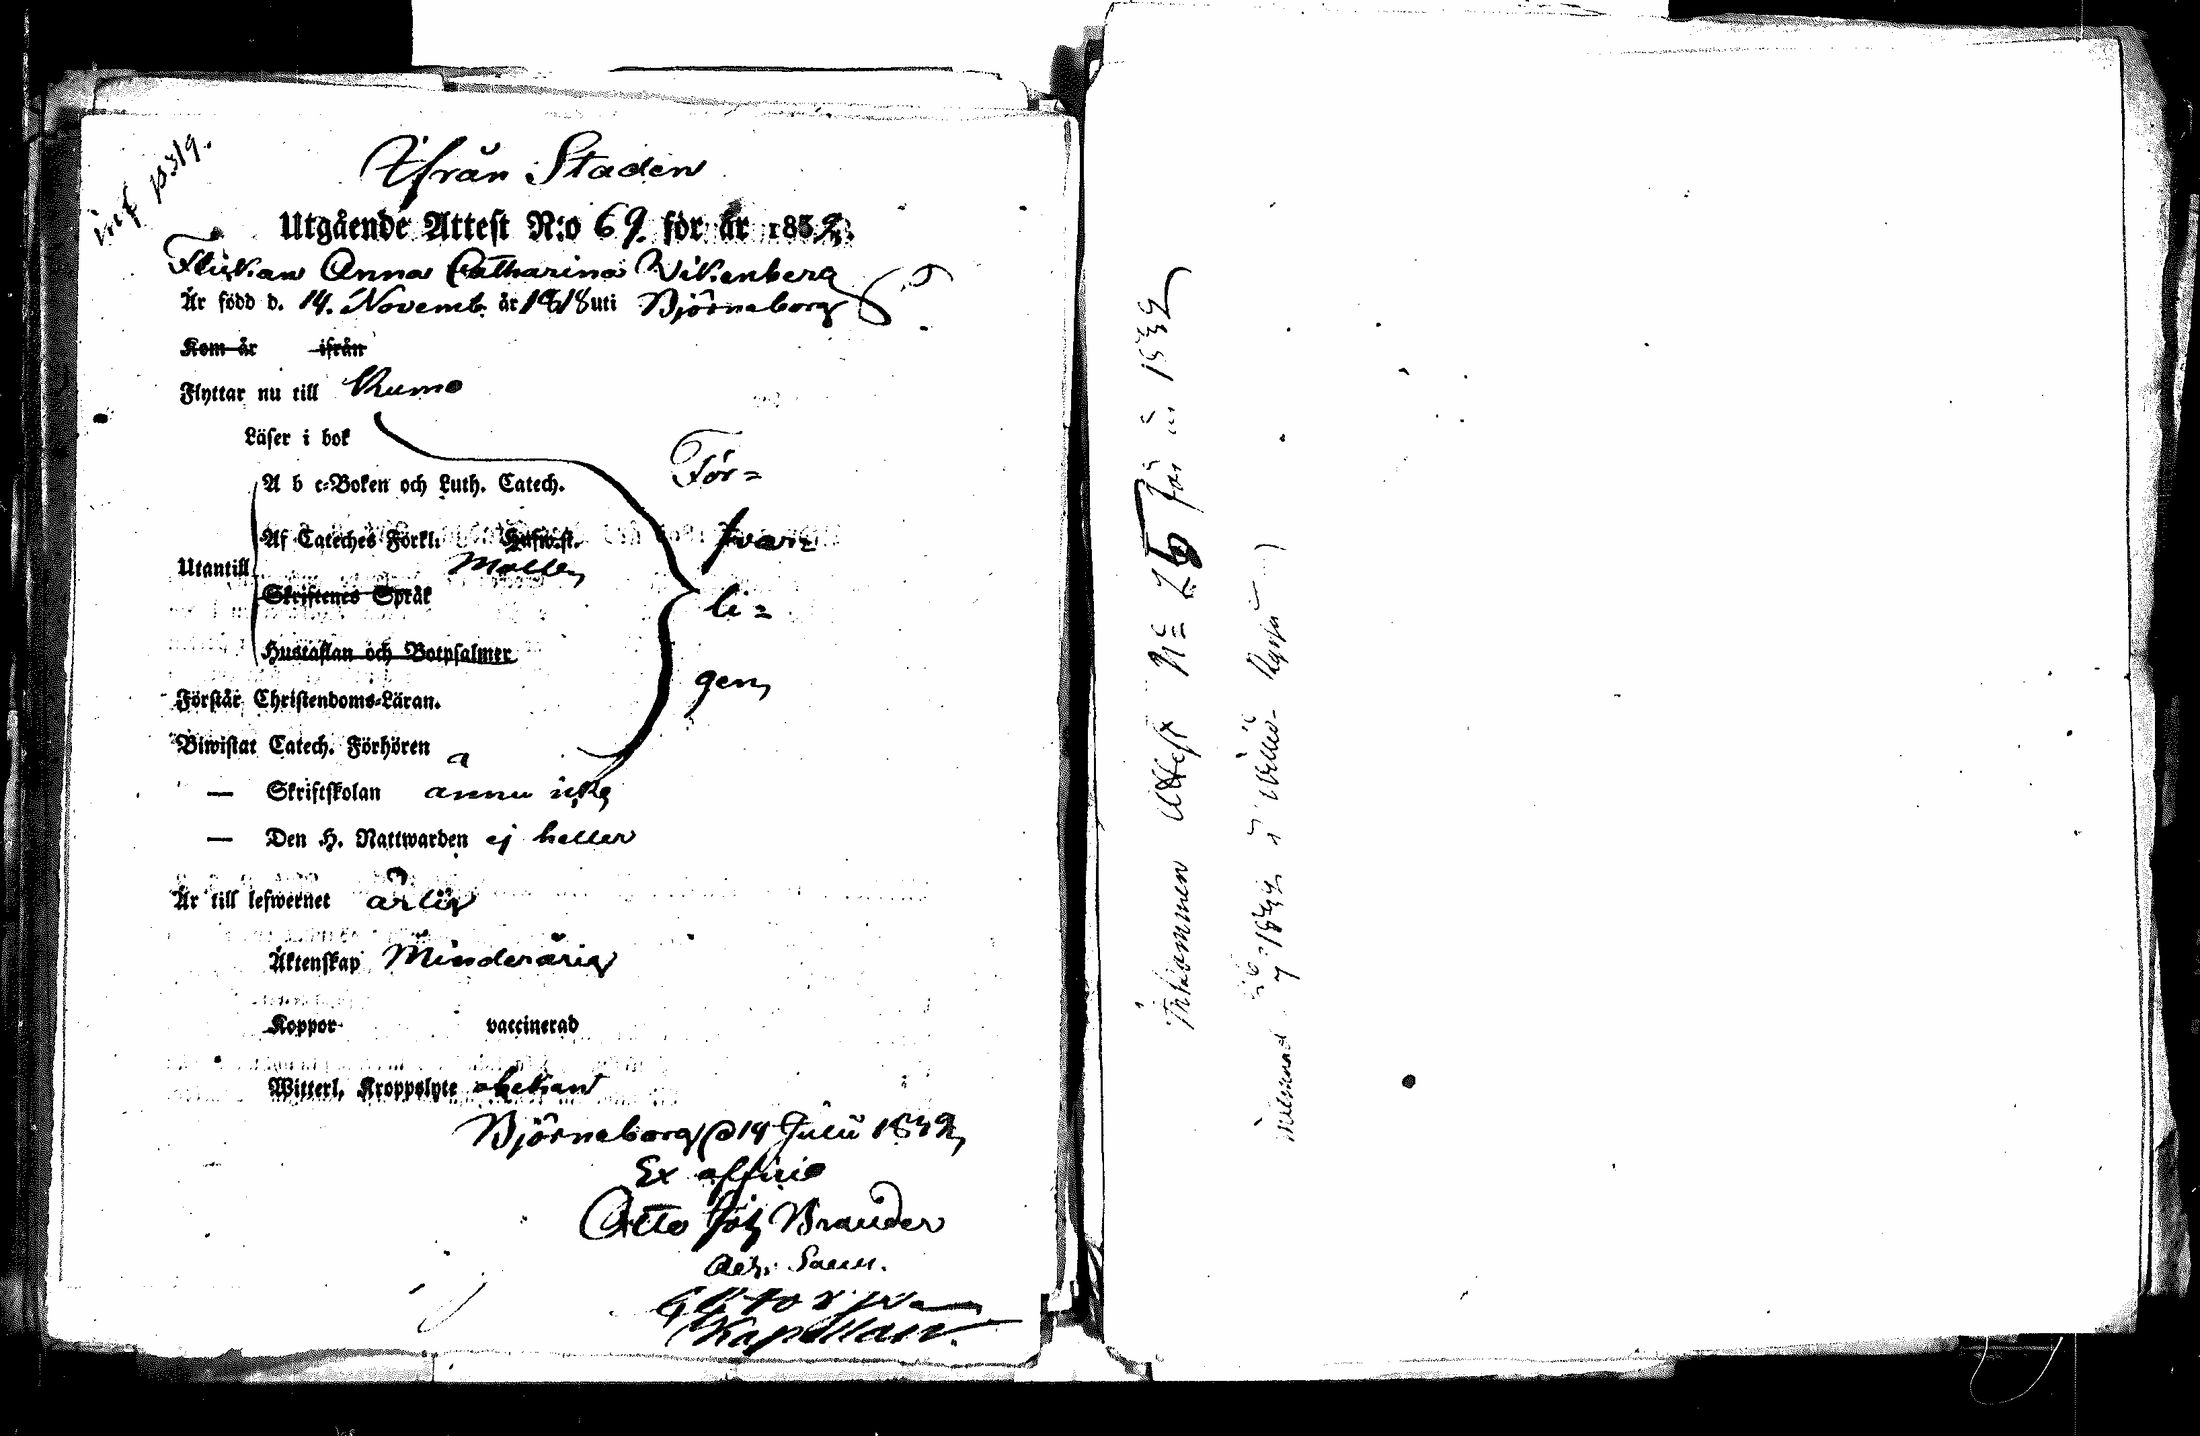 inf p 319.
Ifrån Staden
Utgående Attest N:o 69. för år 1832.
Flickan Anna Catharina Wikenberg
Är född d. 14. Novemb. år 1818 uti Björneborg
Kom år ifrån
Flyttar nu till Kumo
Läser i bok
A b c-Boken och Luth. Catech.
För-
Af Cateches Förkl. Husw.st.
svar-
Utantill
Skriftenes Språk
li-
Hustaflan och Botpsalmer
gen
Förstår Christendoms-Läran.
Biwistat Catech. Förhören
— Skriftskolan ännu icke
— Den H. Nattwarden ej heller
Är till lefwernet ärlig
Äktenskap Minderårig
Koppor vaccinerad
Witterl. Kroppslyte obekant
Björneborg d 14 Julii 1832
Ex officio
Otto Joh Brander
Kapellan.
Inkommen Attest N:o för år 1832